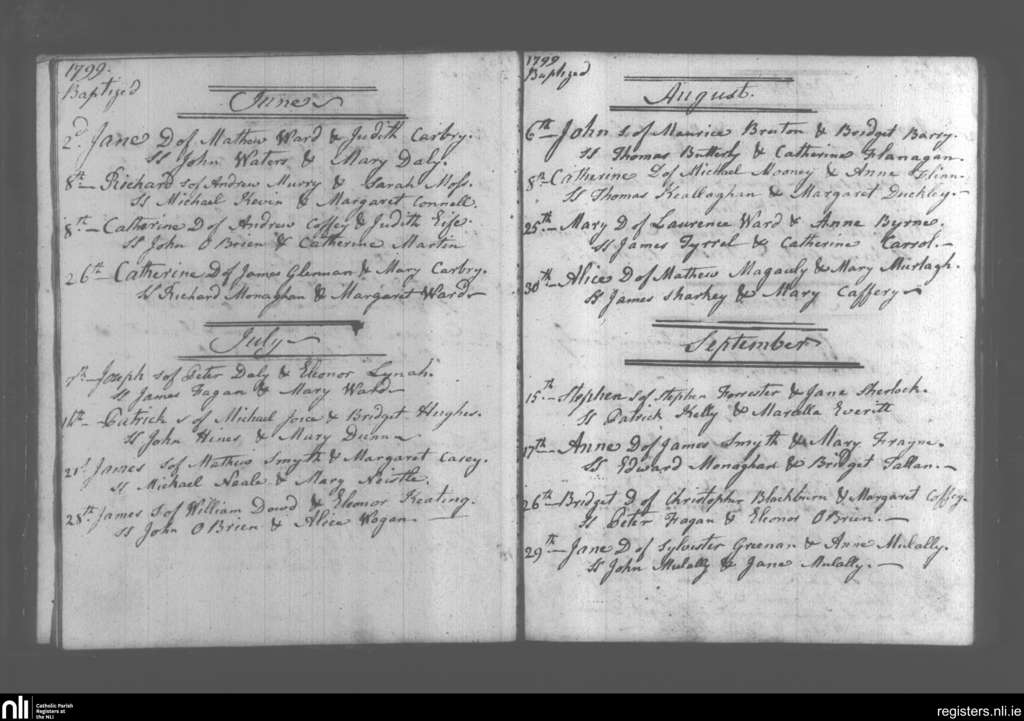 1799.
Baptiz'd
June
2d. Jane D of Mathew Ward & Judith Carbry.
Ss John Waters & Mary Daly.
8th Richard s of Andrew Murry & Sarah Moss.
Ss Michael Kevin & Margaret Connell.
8th Catherine D of Andrew Coffey & Judith Eife.
Ss John O Brien & Catherine Martin
26th Catherine D of James Glennan & Mary Carbry.
Ss Richard Monaghan & Margaret Ward
July
7th Joseph s of Peter Daly & Eleonor Lynah.
Ss James Fagan & Mary Ward
16th Patrick s of Michael Joice & Bridget Hughes.
Ss John Hines & Mary Dunn
21st James s of Mathew Smyth & Margaret Casey.
Ss Michael Neale & Mary
28th James s of William Dowd & Eleonor Keating.
Ss John O Brien & Alice Wogan.
1799
Baptized
August.
6th John s of Maurice Bruton & Bridget Barry.
Ss Thomas Butterly & Catherine Flanagan.
8th Catherine D of Michael Mooney & Anne Flinn.
Ss Thomas Keallaghan & Margaret Duckley.
25th Mary D of Laurence Ward & Anne Byrne.
Ss James Tyrrel & Catherine Carrol.
30th Alice D of Mathew Magauly & Mary Murtagh.
Ss James Sharkey & Mary Caffery
September
15th Stephen s of Stephen Forrester & Jane Sherlock.
Ss Patrick Kelly & Marcella Everitt
17th Anne D of James Smyth & Mary Frayne.
Ss Edward Monaghan & Bridget Fallan.
26th Bridget D of Christopher Blackburn & Margaret Coffey.
Ss Peter Fagan & Eleonor O Brien.
29th Jane D of Sylvester Greenan & Anne Mulally.
Ss John Mulally & Jane Mulally.
nli
Catholic Parish
Registers at
the NLI
registers.nli.ie